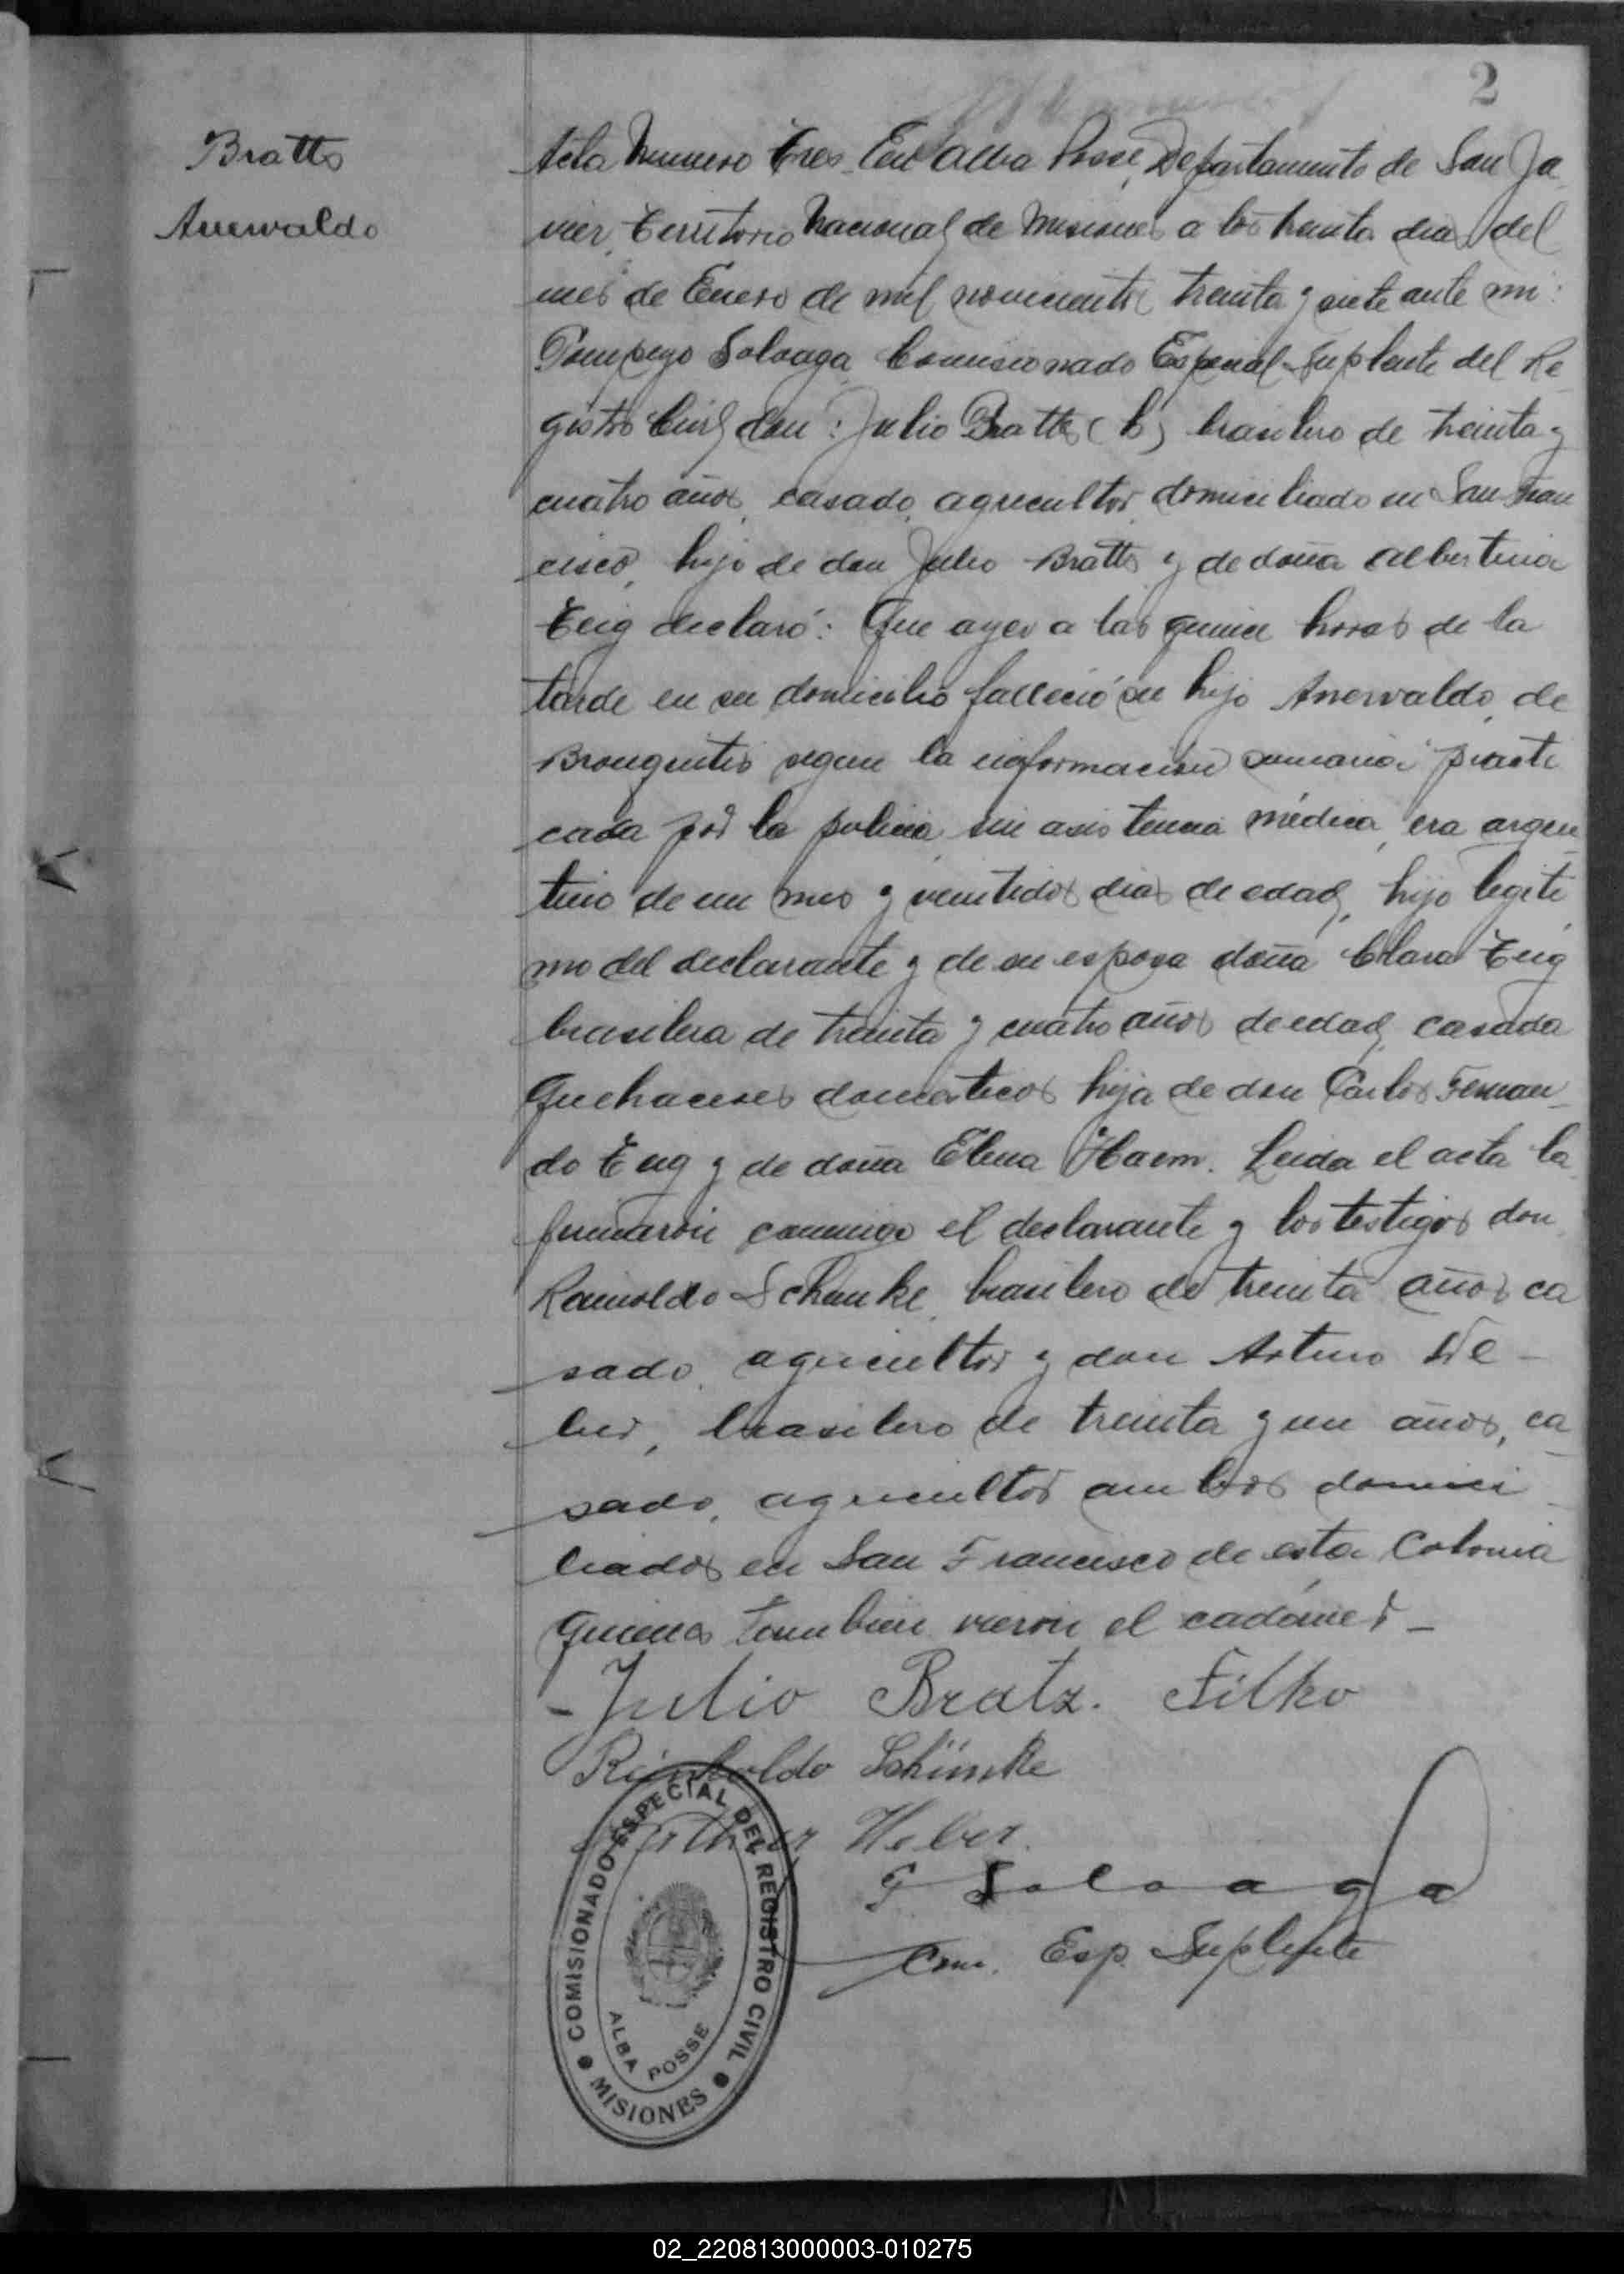 2
Bratts
Anerwaldo
Acta Numero tres. En Alba Posse, Departamento de San Ja
vier, Territorio Nacional de Misiones a los treinta dias del
mes de Enero de mil novecientos treinta y siete ante mi:
Pompeyo Soloaga Comisionado Especial Suplente del Re
gistro Civil don: Julio Bratts (h) brasilero de treinta y
cuatro años, casado, agricultor, domiciliado en San Fran
cisco, hijo de don Julio Bratts y de doña Albertina
Teig declaró: Que ayer a las quince horas de la
tarde en su domicilio falleció su hijo Anerwaldo, de
Bronquitis segun la información sumaria practi
cada por la policia, sin asistencia médica, era argen
tino de un mes y veintidos dias de edad, hijo legiti
mo del declarante y de su esposa doña Clara Teig
brasilera de treinta y cuatro años de edad, casada
Quehaceres domésticos hija de don Carlos Fernan-
do Teig y de doña Elena Haem. Leida el acta la
firmaron conmigo el declarante y los testigos don
Rainoldo Schenke, brasilero de treinta años ca
sado, agricultor y don Arturo We-
ber, brasilero de treinta y un años, ca
sado, agricultor ambos domici
liados en San Francisco de esta Colonia
quienes tambien vieron el cadáver-
- Julio Bratz. Filho
Reinholdo Schimke
Arthur Weber.
P Soloaga
Com. Esp. Suplente
COMISIONADO ESPECIAL DEL REGISTRO CIVIL
ALBA POSSE
MISIONES
02_220813000003-010275